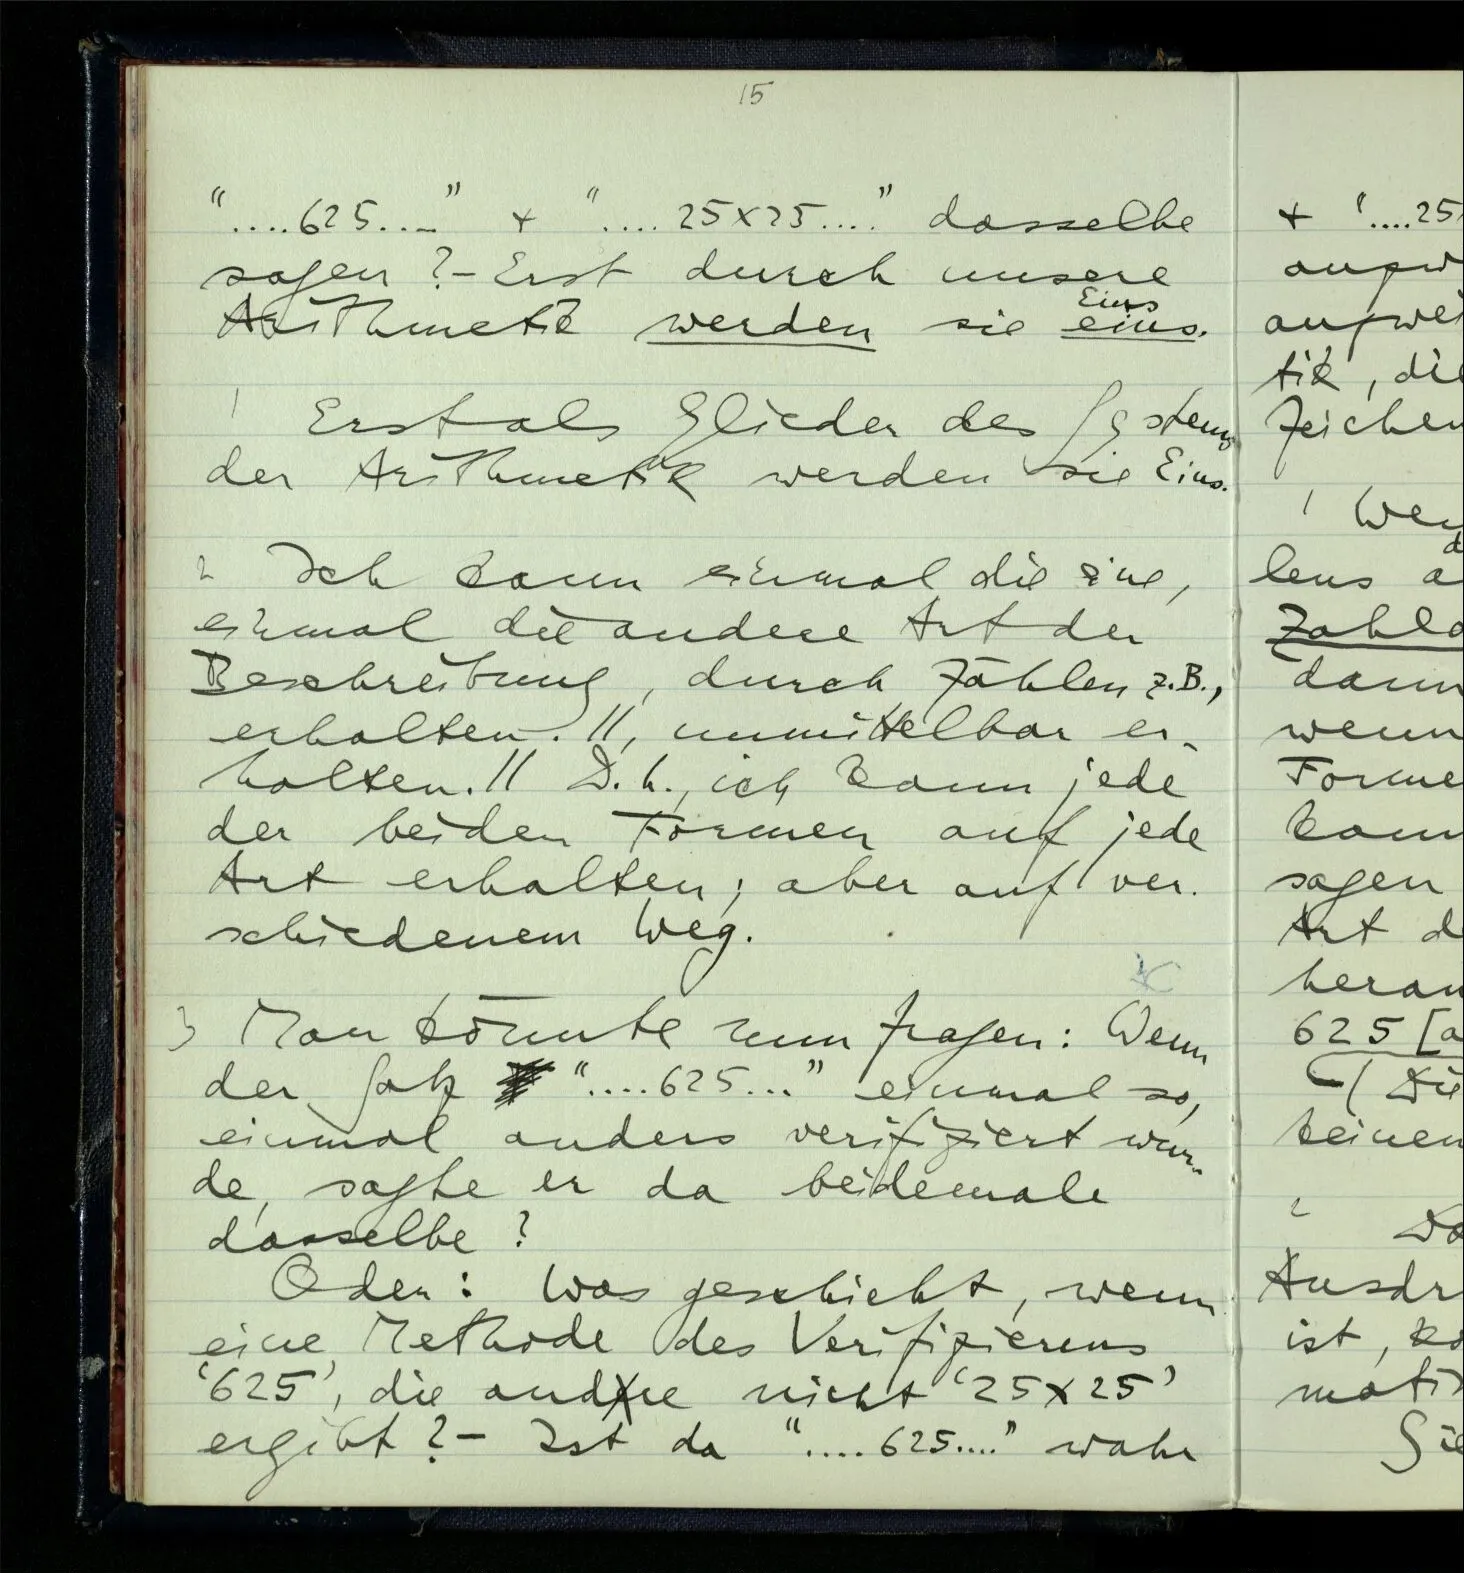 15
“....625....” + “....25×25....” dasselbe
sagen?– Erst durch unsere
Eins
Arithmetik werden sie eins.
1 Erst als Glieder des Systems
der Arithmetik werden sie Eins.
2 Ich kann einmal die eine,
einmal die andere Art der
Beschreibung, durch Zählen z.B.,
erhalten. //, unmittelbar er-
halten.// D.h., ich kann jede
der beiden Formen auf jede
Art erhalten; aber auf ver-
schiedenem Weg.
3 Man könnte nun fragen: Wenn
der Satz “....625...” einmal so,
einmal anders verifiziert wur-
de, sagte er da beidemale
dasselbe?
Oder: Was geschieht, wenn
eine Methode des Verifizierens
‘625’, die andre nicht ‘25×25’
ergibt?– Ist da “....625....” wahr
+ ‘....25
tik, die
Zeichen
1
lens
dann
wenn
Forme
kann
sagen
Art d
heran
625 [a
(Die
keinen
2
Ausdr
ist, ko
Sie